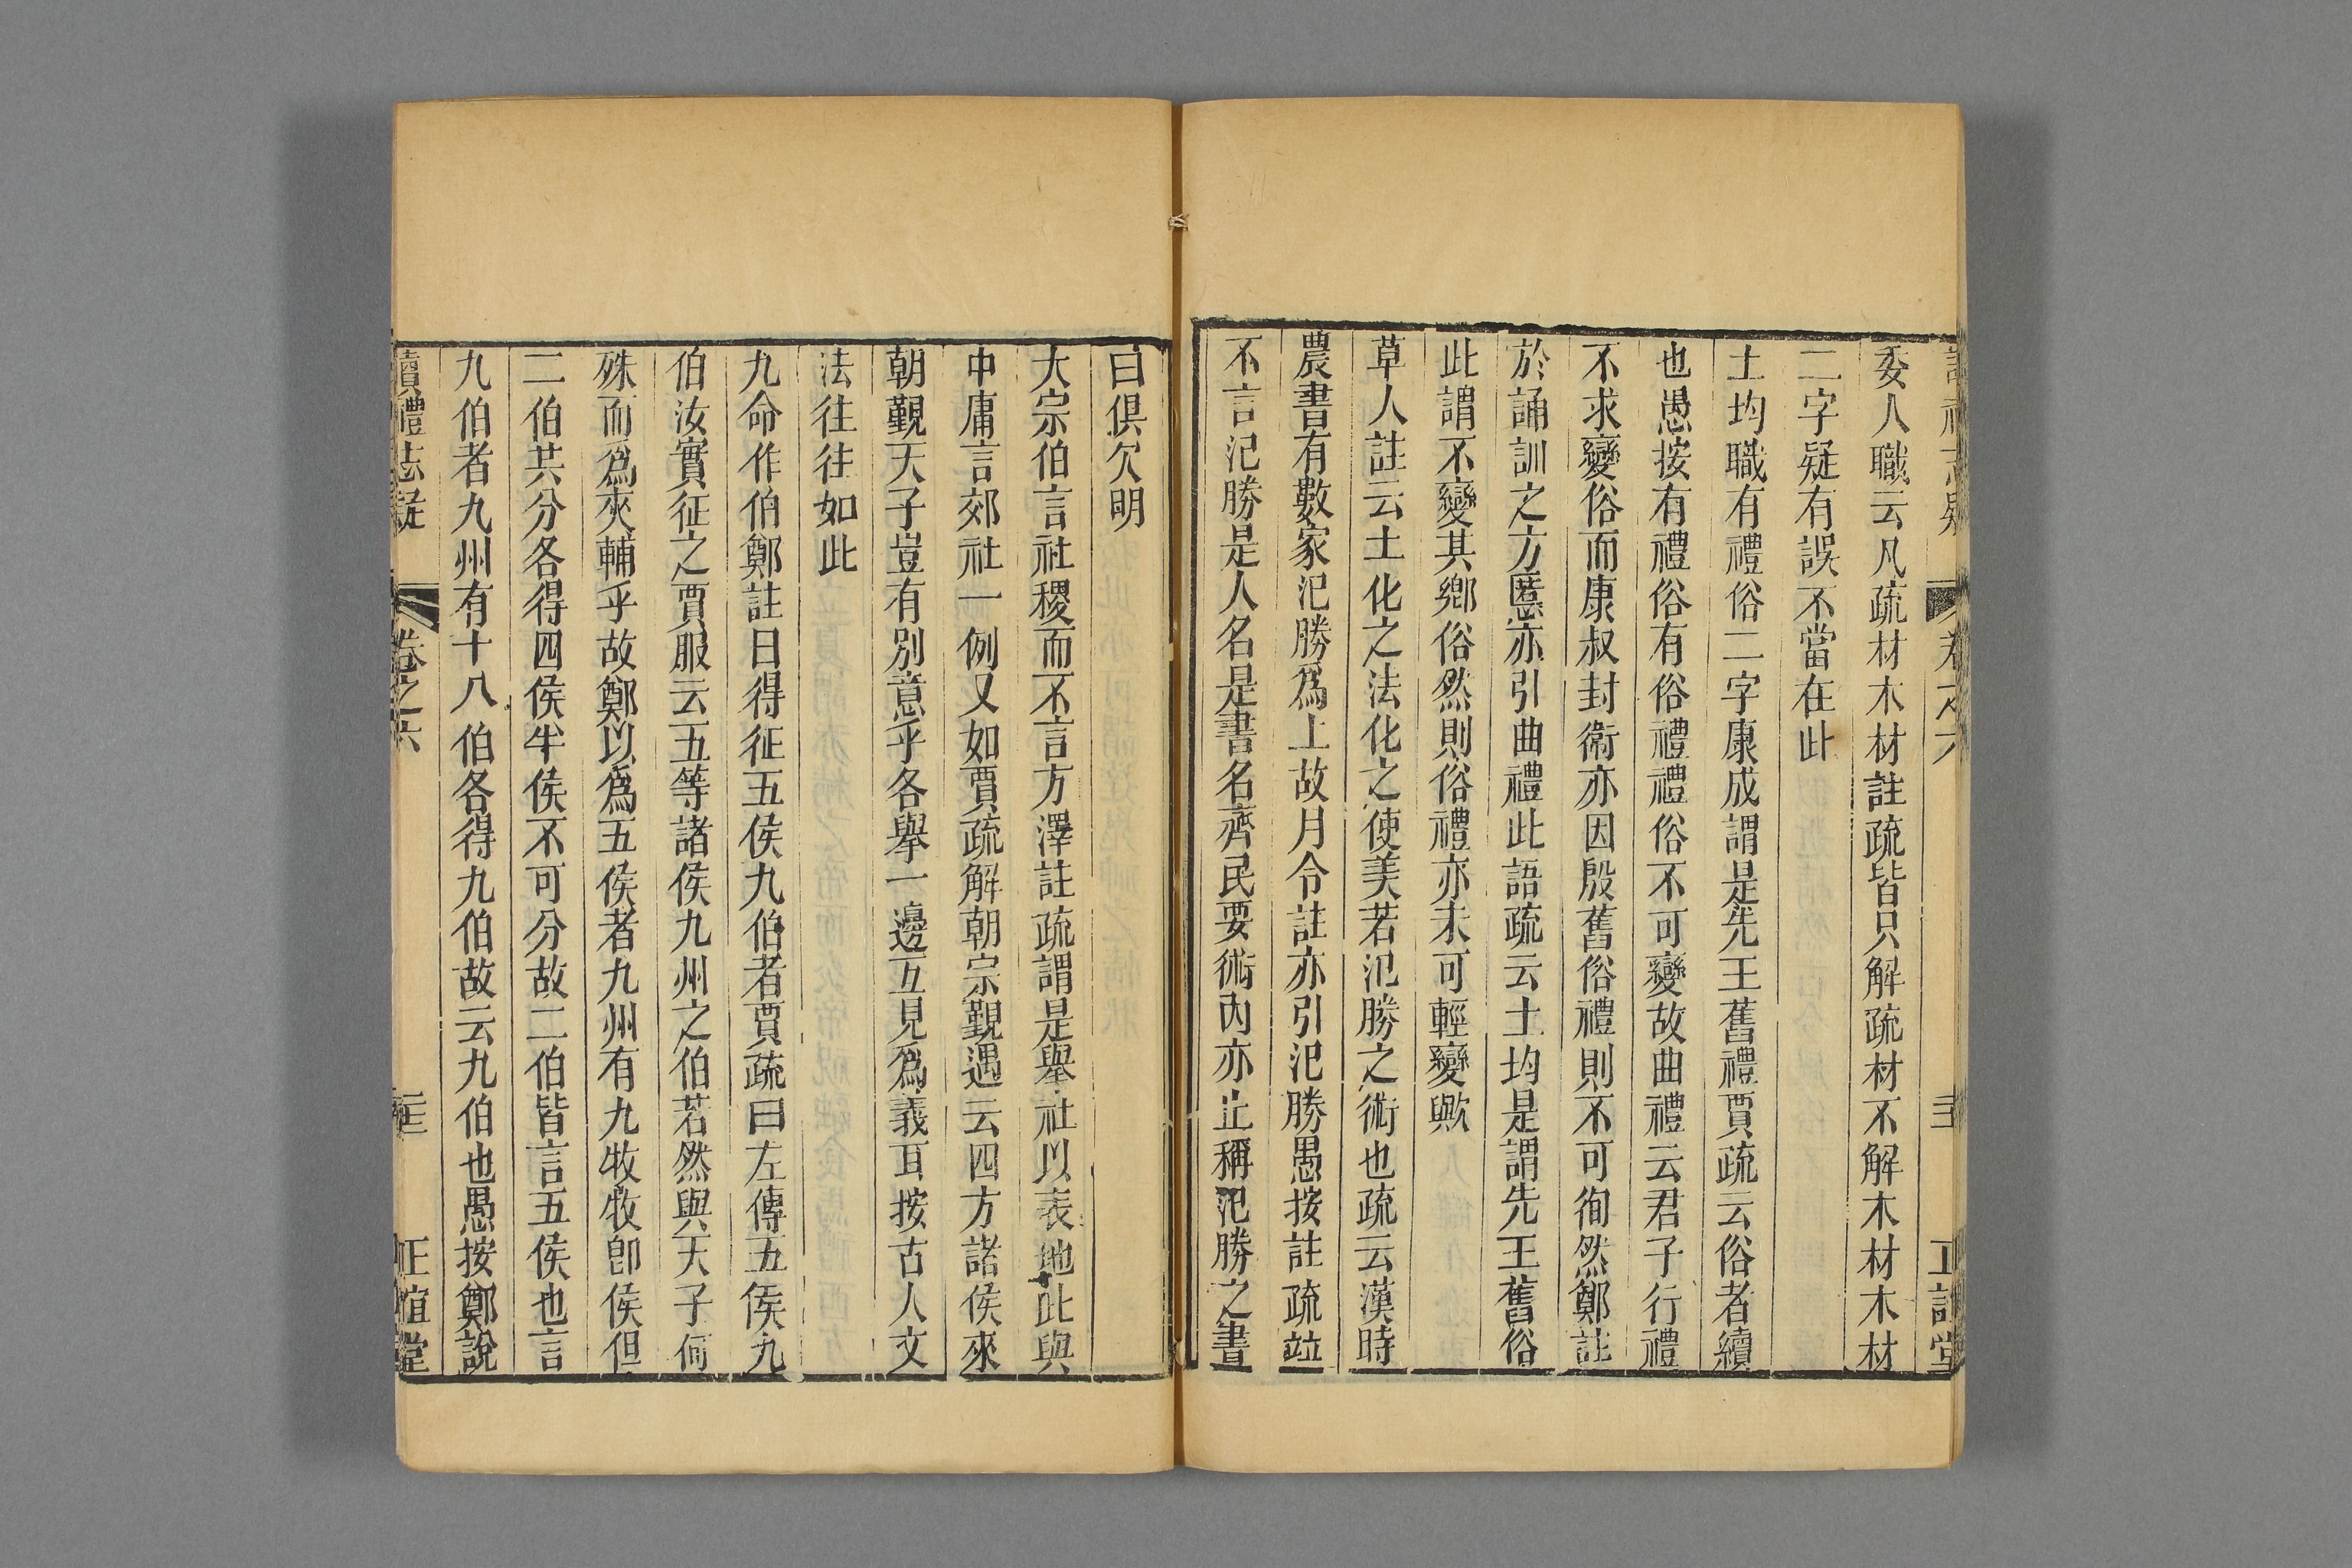 委人職云凡疏材木材註疏皆只解疏材不解木材木材
二字疑有誤不當在此
土均職有禮俗二字康成謂是先王舊禮賈疏云俗者續
也愚按有禮俗有俗禮禮俗不可變故曲禮云君子行禮
不求變俗而康叔封衛亦因殷舊俗禮則不可徇然鄭註
於誦訓之方慝亦引曲禮此語疏云土均是謂先王舊俗
此謂不變其鄉俗然則俗禮亦未可輕變歟
草人註云土化之法化之使美若氾勝之術也疏云漢時
農書有數家氾勝爲上故月令註亦引氾勝愚按註疏竝
不言氾勝是人名是書名齊民要術內亦止稱氾勝之書
曰俱欠明
大宗伯言社稷而不言方澤註疏謂是舉社以表地此與
中庸言郊社一例又如賈疏解朝宗覲遇云四方諸侯來
朝覲天子豈有別意乎各舉一邊互見爲義耳按古人文
法往往如此
九命作伯鄭註曰得征五侯九伯者賈疏曰左傳五侯九
伯汝實征之賈服云五等諸侯九州之伯若然與天子何
殊而爲夾輔乎故鄭以爲五侯者九州有九牧牧卽侯但
二伯共分各得四侯半侯不可分故二伯皆言五侯也言
九伯者九州有十八伯各得九伯故云九伯也愚按鄭說
讀禮志疑 卷之六 正誼堂